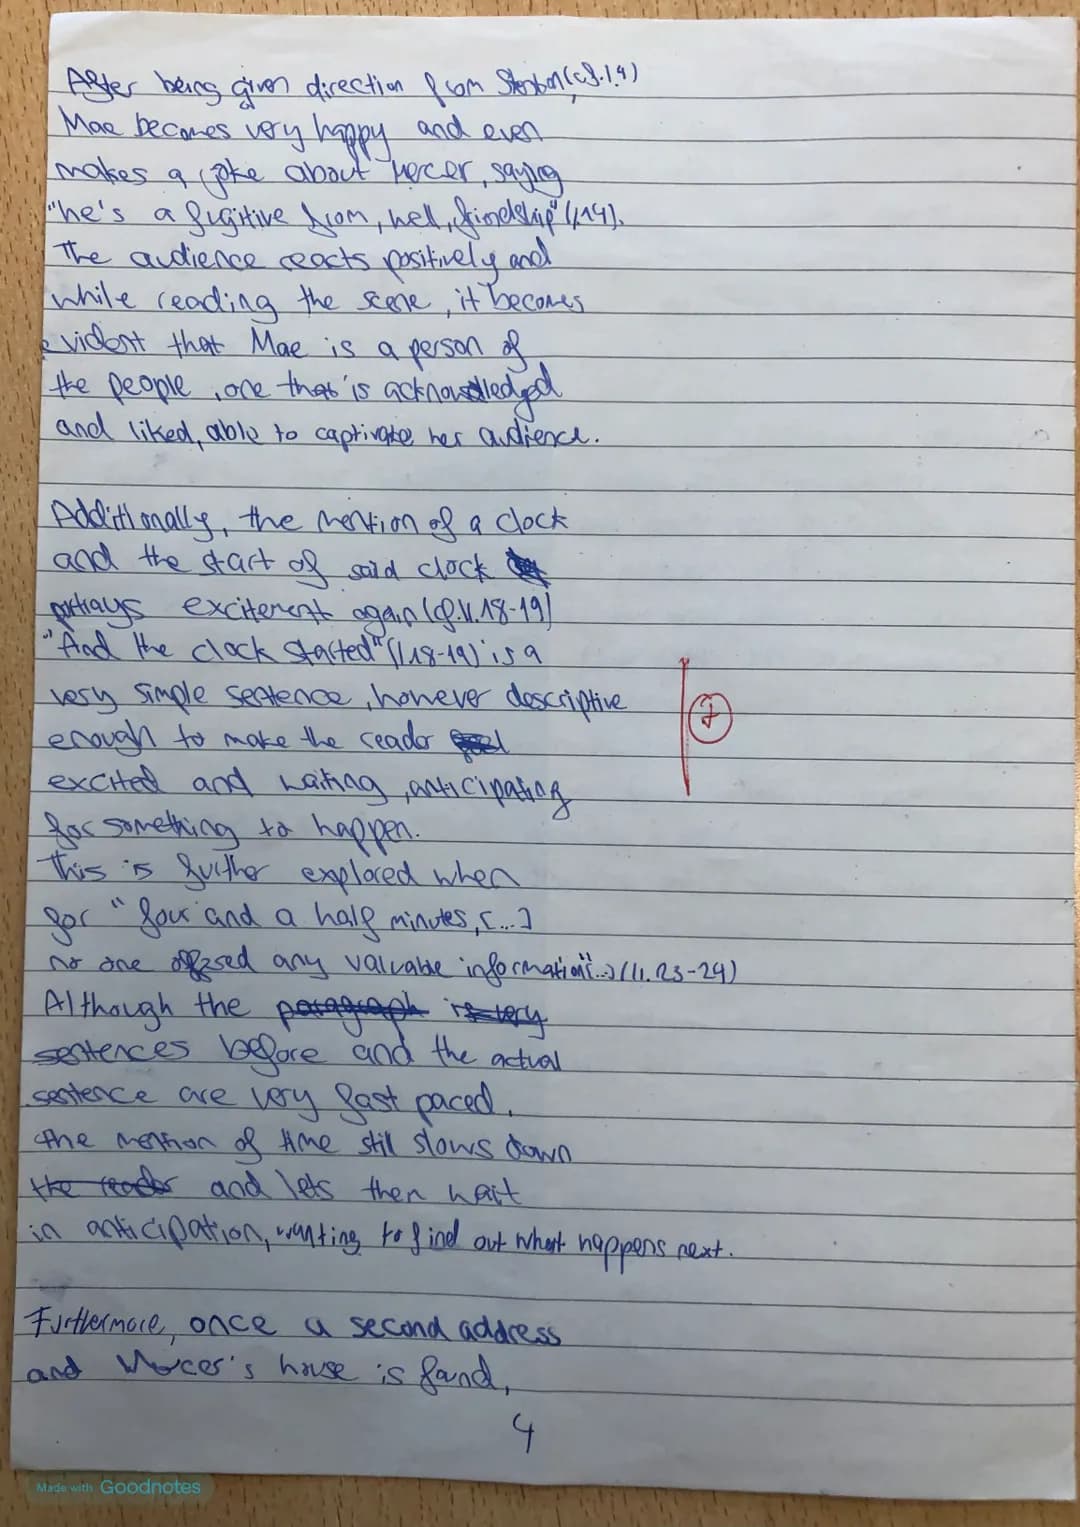 After being given direction from Stenton (cf. l.4)
Mae becomes very happy and even
makes a joke about Mercer, saying
"he's a fugitive from, well, friendship" (l.14).
The audience reacts positively and
while reading the scene, it becomes
evident that Mae is a person of
the people, one that is acknowledged
and liked, able to captivate her audience.
Additionally, the mention of a clock
and the start of said clock
portrays excitement again (cf. ll.18-19)
"And the clock started" (ll 18-19) is a
very simple sentence, however descriptive
enough to make the reader
excited and waiting, anticipating
for something to happen.
This is further explored when
for "four and a half minutes, [...]
no one offered any valuable information" [...] (ll. 23-24)
Although the paragraph is very
sentences before and the actual
sentence are very fast paced,
the mention of time still slows down
the reader and lets then wait
in anticipation, wanting to find out what happens next.
Furthermore, once a second address
and Mercer's house is found,
4
Made with Goodnotes